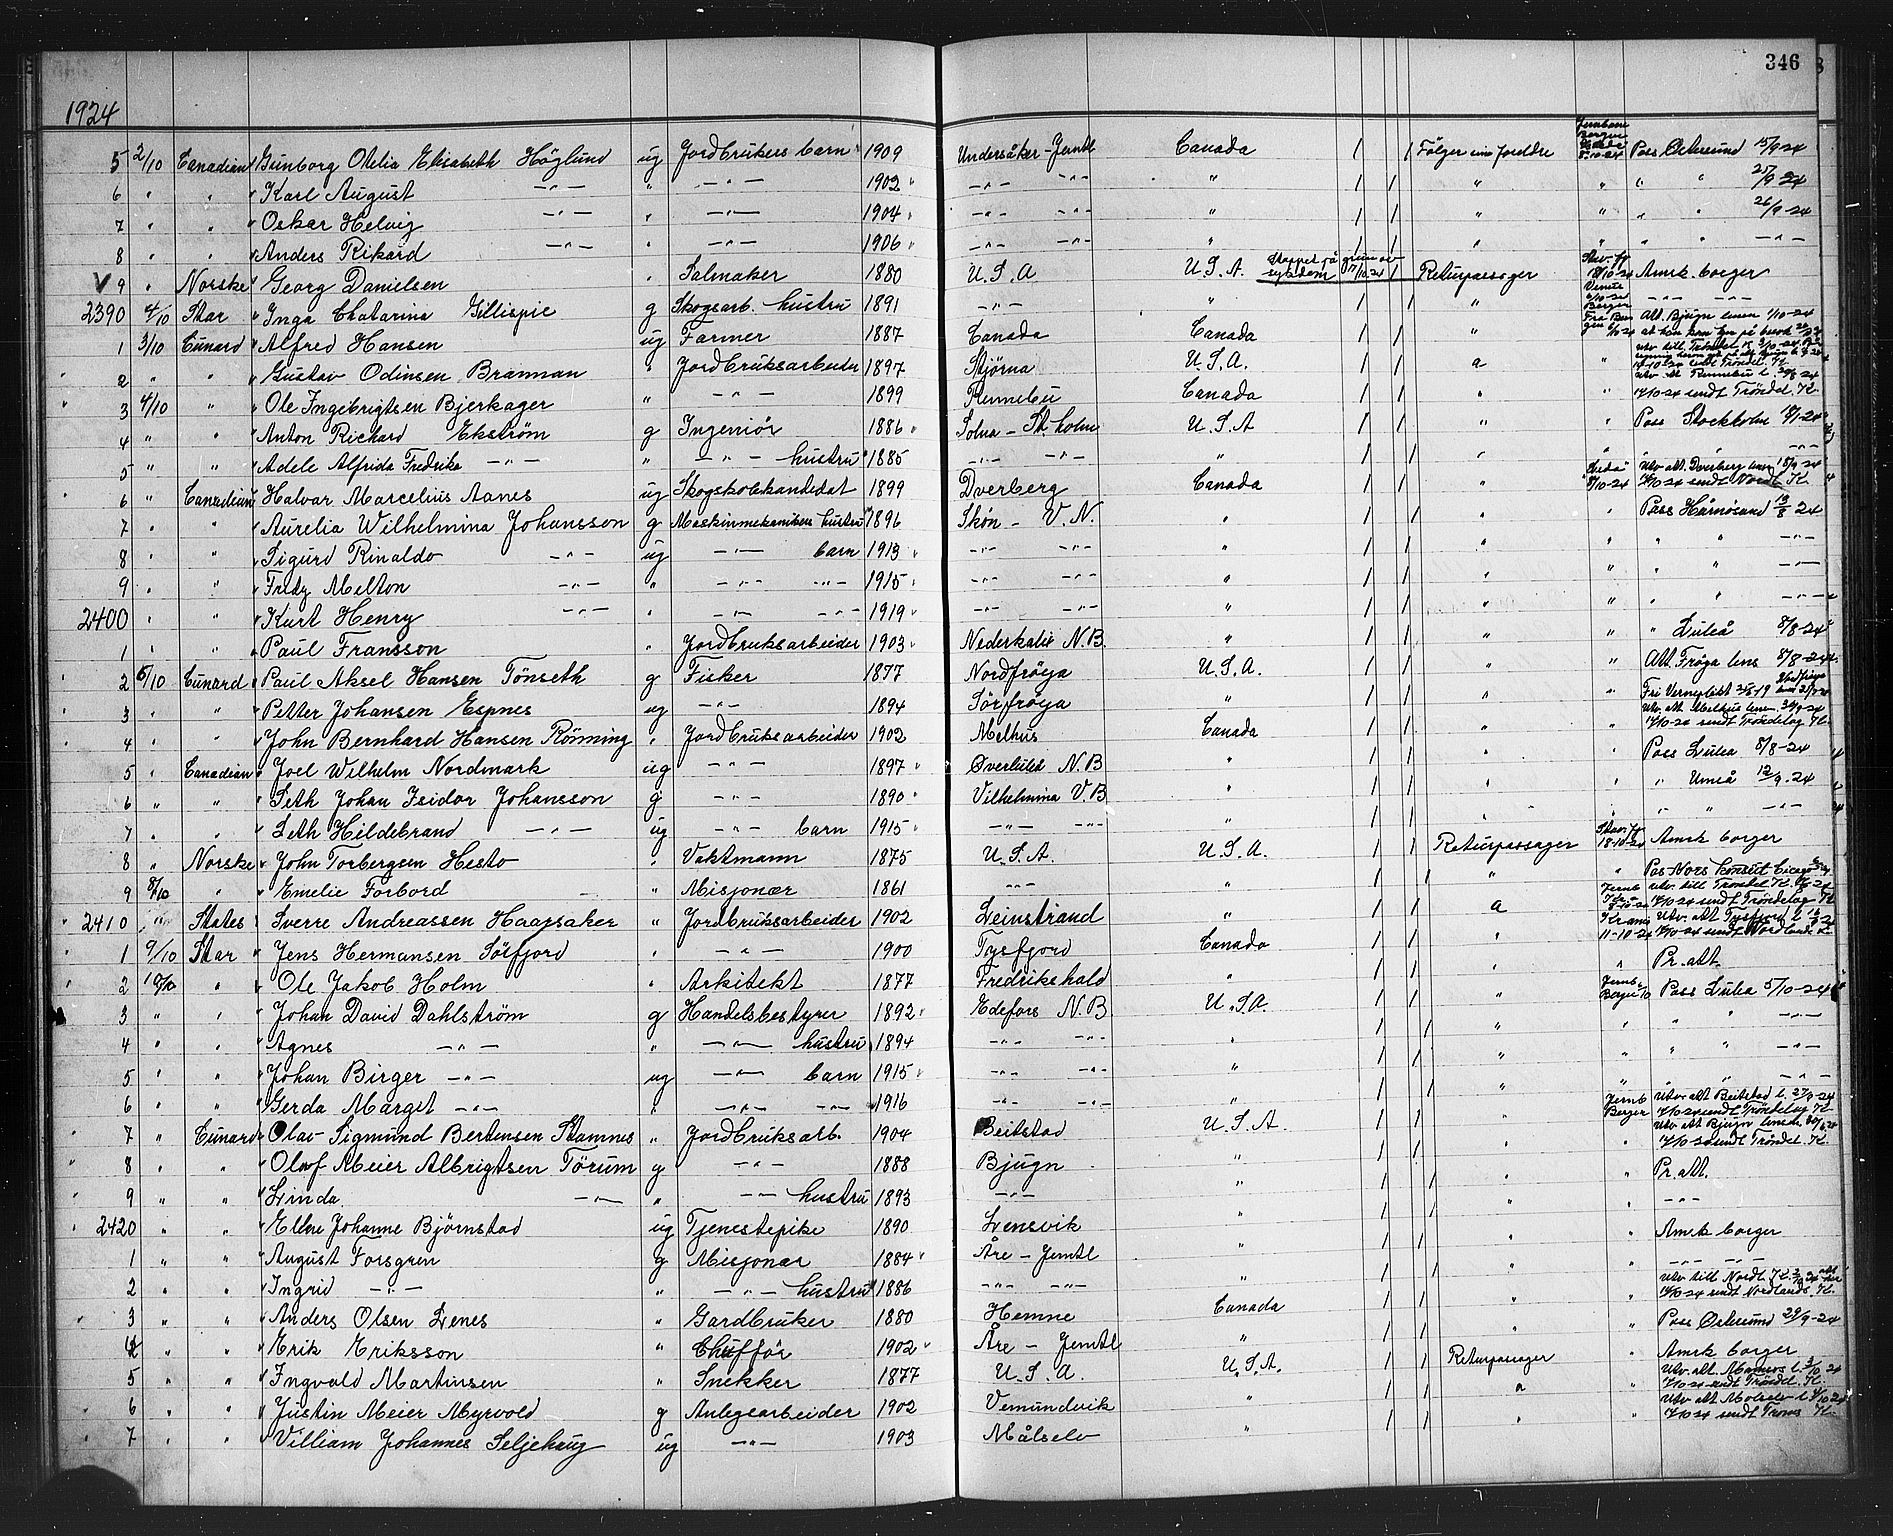 346
1924
5 2/10 Canadian " Gunborg Otelia Elisabeth Höglund ug Jordbrukers barn 1909 Undersåker - Jemtl Canada 1 1 Følger sine foreldre Jernbane Bergen 8-10-24 Pass Østersund 15/9 24
6 " " " Karl August -"- " -"- 1902 " -"- -"- " 1 1 " " " " 25/9-24
7 " " " Oskar Helvig -"- " -"- 1904 " -"- -"- " 1 1 " " " " 26/9-24
8 " " " Anders Rikard " -"- 1906 " -"- -"- " 1 1 " " " " -"-
V 9 " Norske " Georg Danielsen " Salmaker 1880 U.S.A U.S.A. Stoppet på grunn av sykdom 17/10-24 1 Returpassager Stav. fj 18/10-24 Amrk borger
2390 4/10 Star " Inga Chatarina Gillispie g Skogsarb. hustru 1891 -"- " 1 1 " -"- -"-
1 3/10 Cunard " Alfred Hansen ug Farmer 1887 Canada Canada 1 1 " Att. Bjugn lensm 1/10-24
2 " " " Gustav Odinsen Brannan " Jordbruksarbeider 1897 Stjørna U.S.A. 1 1 a "
3 4/10 " " Ole Ingebrigtsen Bjerkager " -"- 1899 Rennebu Canada 1 1 " " 17/10-24 sendt Trøndel. K.
4 " " " Anton Richard Ekstrøm g Ingeniør 1886 " Solna - St. holm U.S.A 1 1 " " Pass Stockholm
5 " " " Adele Alfrida Fredrika -"- " -"- hustru 1885 -"- -"- " 1 1 " " " -"-
6 " Canadian " Halvar Marcelius Aanes ug Skogskolekandidat 1899 Dverberg Canada 1 1 " 8/10-24 Utv. att. Dverberg lensm 18/9-24 17/10-24 sendt Nordl. K.
7 " " " Aurelia Wilhelmina Johansson g Maskinmekanikers hustru 1896 Skön - V.N. " 1 1 " " Pass Härnösand 13/8 24
8 " " " Sigurd Rinaldo -"- ug -"- barn 1913 " -"- -"- " 1 1 " " " " -"-
9 " " " Fredy Melton -"- " -"- -"- 1915 " -"- -"- " 1 1 " " " " -"-
2400 " " " Kurt Henry -"- " -"- -"- 1919 " -"- -"- " 1 1 " " " " -"-
1 " " " Paul Fransson " Jordbruksarbeider 1903 " Nederkalix N.B. " 1 1 " " " Luleå 8/8-24
2 6/10 Cunard " Paul Aksel Hansen Tönseth g Fisker 1877 Nordfrøya U.S.A. 1 1 " " Att. Frøya lens 8/8-24
3 " " " Petter Johansen Espnes ug -"- 1894 Sörfröya " 1 1 " " Fri Verneplikt
4 " " " John Bernhard Hansen Rönning " Jordbruksarbeider 1902 Melhus Canada 1 1 " " Utv. att Melhus lensm. 17/10-24 sendt Trøndelag K.
5 " Canadian " Joel Wilhelm Nordmark ug -"- 1897 " Överluleå N.B " 1 1 " " Pass Luleå 8/8-24
6 " " " Seth Johan Isidor Johansson g -"- 1890 " Vilhelmina V.B " 1 1 " " " Umeå 12/9.24
7 " " " Seth Hildebrand -"- ug -"- barn 1915 " -"- -"- " 1 1 " " " " -"-
8 " Norske " John Torbergsen Hesto " Vaktmann 1875 U.S.A. U.S.A. 1 1 Returpassager Stav. fj 18-10-24 Amrk borger
9 8/10 " " Emelie Forbord " Misjonær 1861 -"- " 1 1 " " Pas Nors konsul Cicago
2410 " States " Sverre Andreassen Haagsaker " Jordbruksarbeider 1902 Leinstrand " 1 1 a Utv. till Trøndel. K. 17/10-24 sendt Trøndelag K.
1 9/10 Star " Jens Hermansen Sörfjord " -"- 1900 Tysfjord Canada 1 1 " Krans 11-10-24 Utv. att Tysfjord l. 17/10-24 sendt Nordland K.
2 10/10 " " Ole Jakob Holm " Arkitekt 1877 Fredrikshald " 1 1 " " Pr. att.
3 " " " Johan David Dahlström g Handelsbestyrer 1892 " Edefors N.B U.S.A. 1 1 " Jernb. Bergen Pass Luleå 5/10-24
4 " " " Agnes -"- " -"- hustru 1894 -"- -"- " 1 1 " " " " -"-
5 " " " Johan Birger -"- ug -"- barn 1915 " -"- -"- " 1 1 " " " " -"-
6 " " " Gerda Marget -"- " -"- -"- 1916 -"- -"- " 1 1 " " " " -"-
7 " Cunard " Olav Sigmund Bertensen Stamnes " Jordbruksarb. 1904 Beitstad U.S.A. 1 1 " Jernb Bergen Utv. att Beitstad l. 27/9-24 17/10-24 sendt Trøndelag K.
8 " " " Olaf Meier Albrigtsen Törum g -"- 1888 Bjugn " 1 1 " " Utv att Bjugn lensm. 17/10-24 sendt Trøndel. K.
9 " " " Linda -"- " -"- hustru 1893 -"- " 1 1 " " Pr. att.
2420 " " " Ellne Johanne Björnstad ug Tjenestepike 1890 Lensvik " 1 1 " " -"-
1 " " " August Forsgren g Misjonær 1884 " Åre - Jemtl " 1 1 " " Amrk borger
2 " " " Ingrid -"- " -"- hustru 1886 -"- -"- " 1 1 " " -"- -"-
3 " " " Anders Olsen Lenes " Gardbruker 1880 Hemne Canada 1 1 " " 17/10-24 sendt Nordlands K.
4 " " " Erik Eriksson " Chufför 1902 " Åre - Jemtl " 1 1 " " Pass Østersund 29/9-24
5 " " " Ingvald Martinsen " Snekker 1877 U.S.A. U.S.A. 1 1 Returpassager " Amrk borger
6 " " " Justin Meier Myrvold g Anlegsarbeider 1902 Vemundvik " 1 1 a " 17/10-24 sendt Trøndel. K.
7 " " " Villiam Johannes Seljehaug ug -"- 1903 Målselv " 1 1 " " Utv att Målselv l. 17/10-24 sendt Troms K.